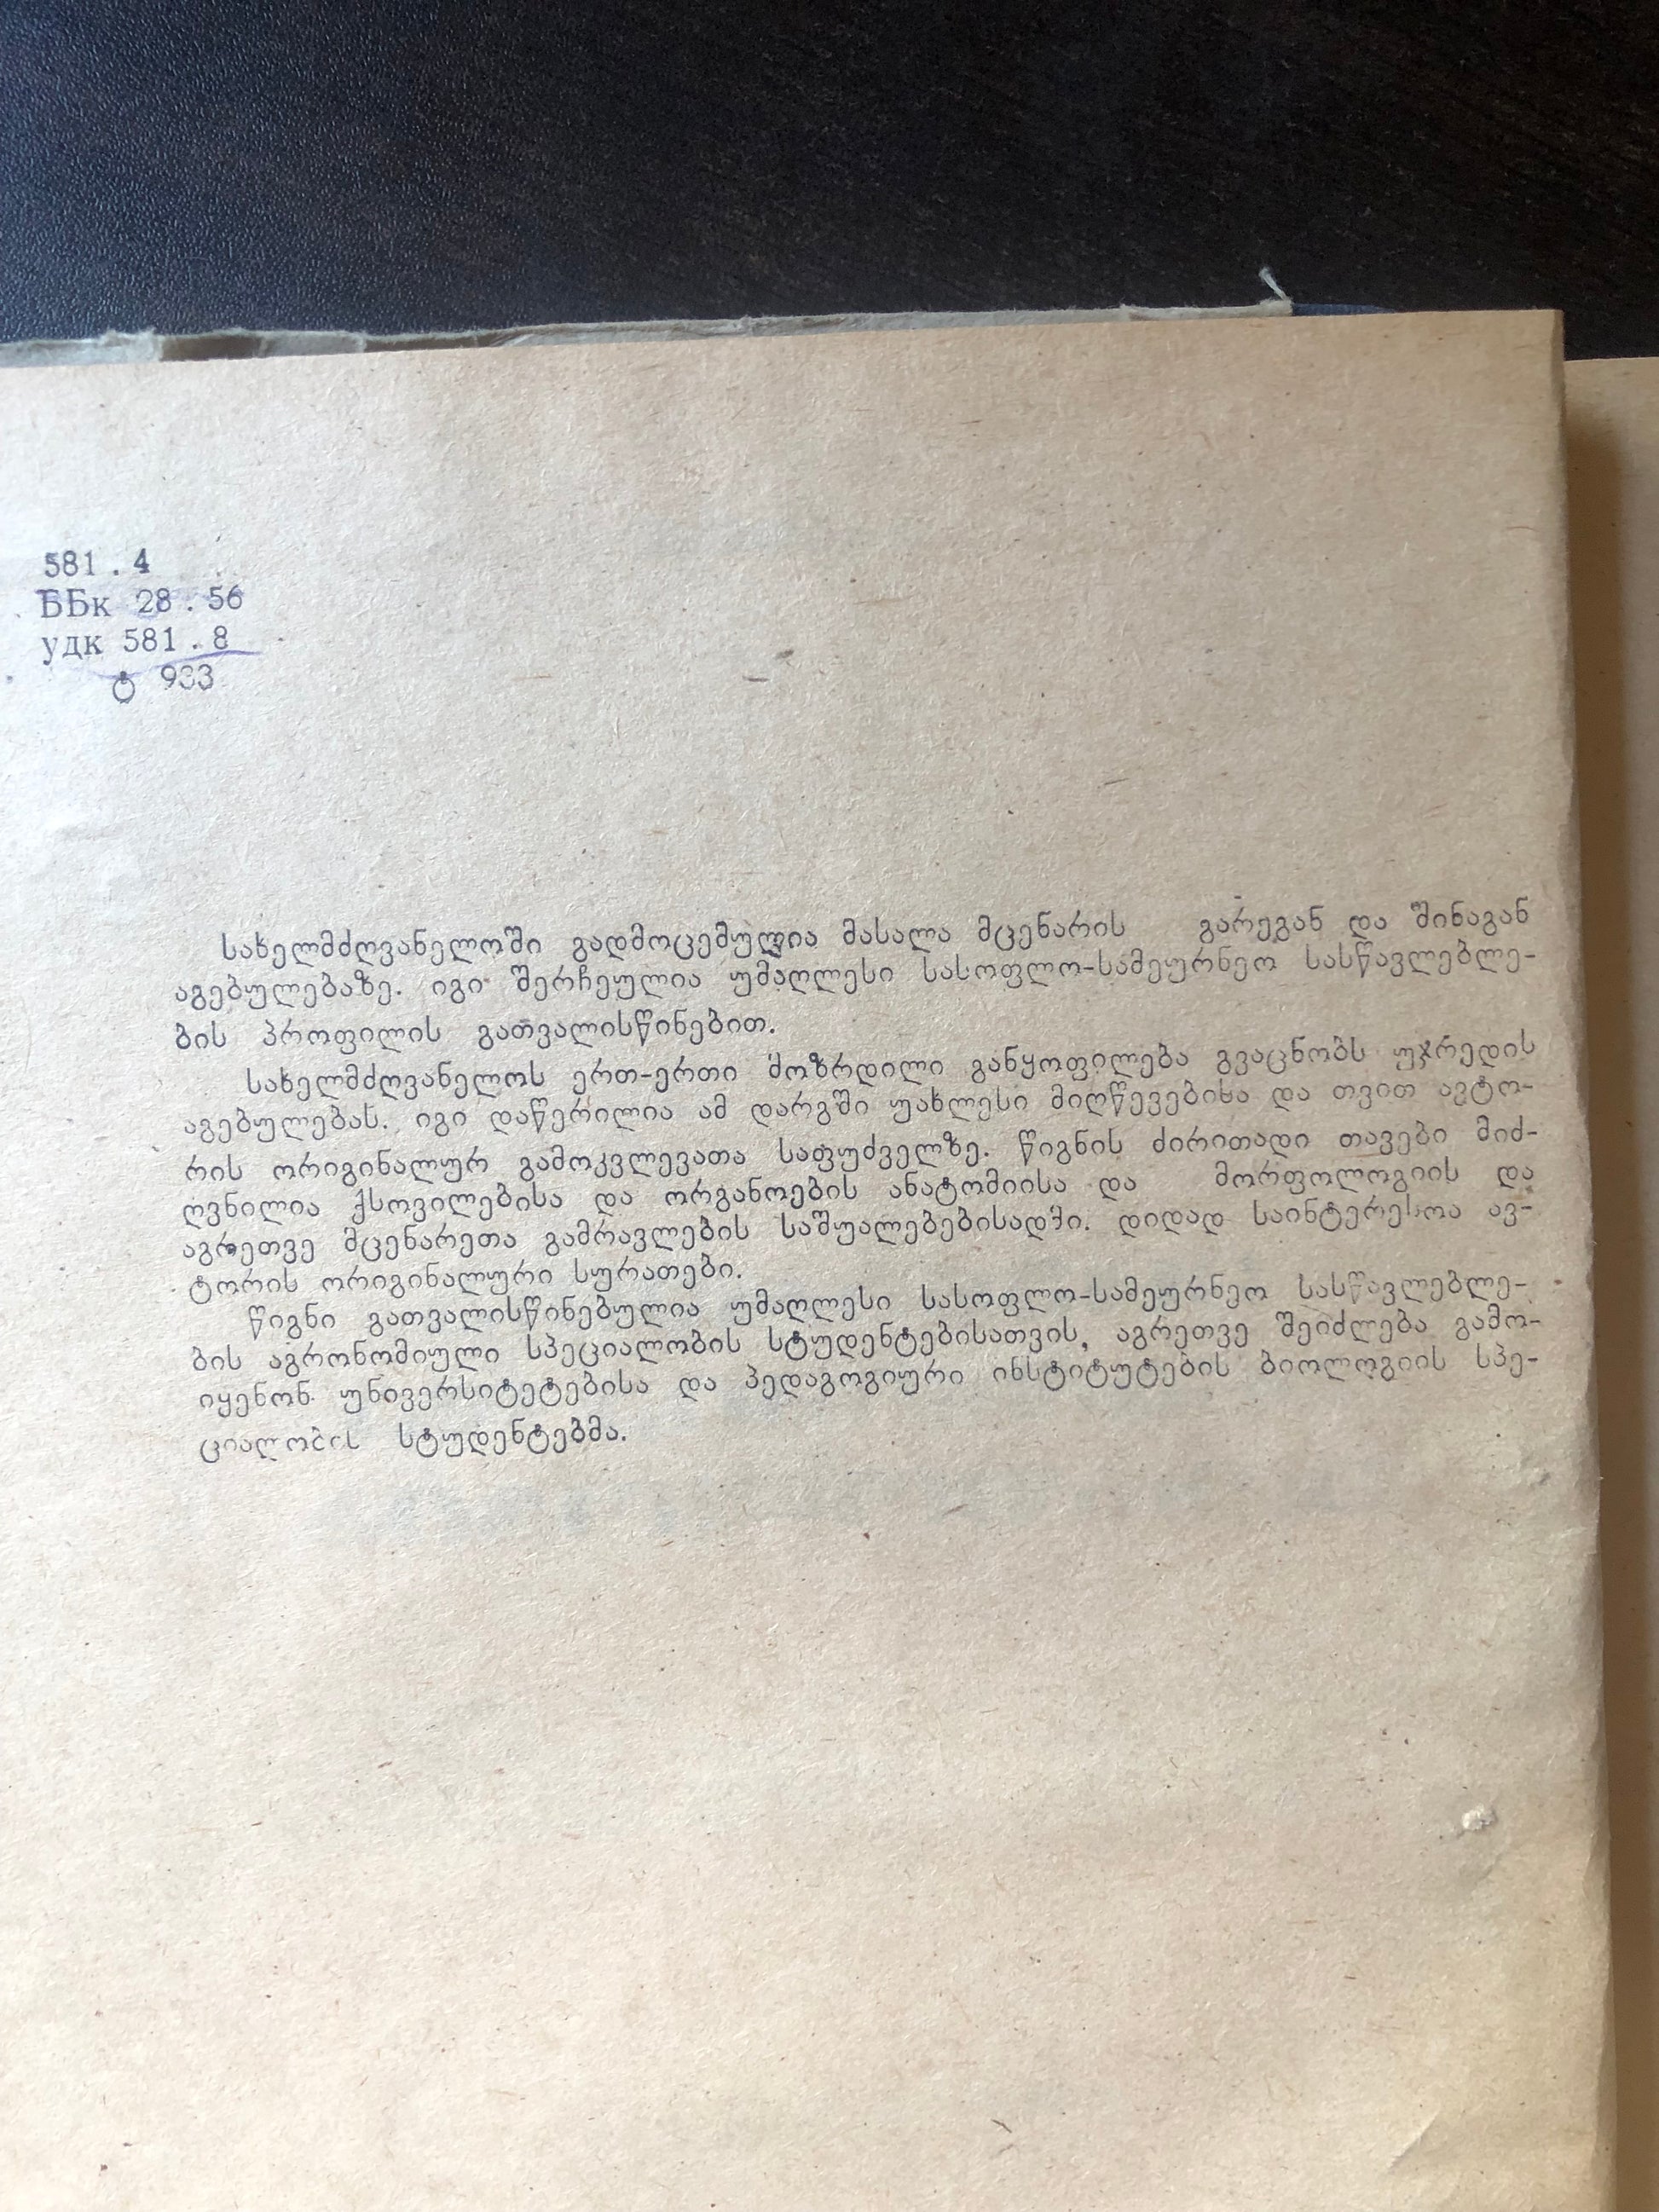 581.4
ББк 28.56
удк 581.8
ტ 933
სახელმძღვანელოში გადმოცემულია მასალა მცენარის გარეგან და შინაგან
აგებულებაზე. იგი შერჩეულია უმაღლესი სასოფლო-სამეურნეო სასწავლებლე-
ბის პროფილის გათვალისწინებით.
სახელმძღვანელოს ერთ-ერთი მოზრდილი განყოფილება გვაცნობს უჯრედის
აგებულებას. იგი დაწერილია ამ დარგში უახლესი მიღწევებისა და თვით ავტო-
რის ორიგინალურ გამოკვლევათა საფუძველზე. წიგნის ძირითადი თავები მიძ-
ღვნილია ქსოვილებისა და ორგანოების ანატომიისა და მორფოლოგიის და
აგრეთვე მცენარეთა გამრავლების საშუალებებისადმი. დიდად საინტერესოა ავ-
ტორის ორიგინალური სურათები.
წიგნი გათვალისწინებულია უმაღლესი სასოფლო-სამეურნეო სასწავლებლე-
ბის აგრონომიული სპეციალობის სტუდენტებისათვის, აგრეთვე შეიძლება გამო-
იყენონ უნივერსიტეტებისა და პედაგოგიური ინსტიტუტების ბიოლოგიის სპე-
ციალობის სტუდენტებმა.